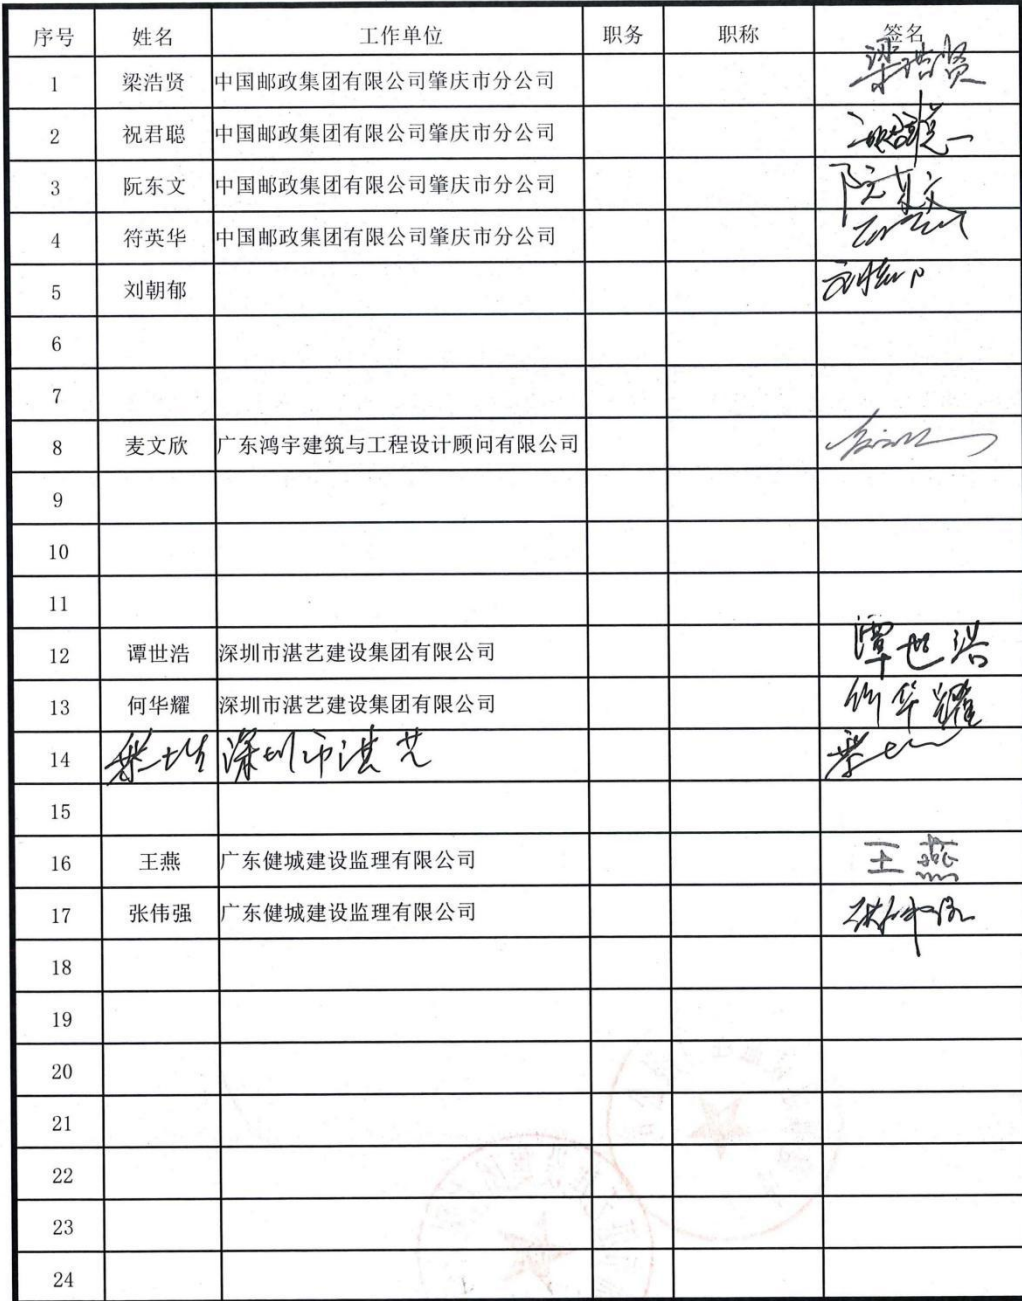 序号 姓名 工作单位 职务 职称 签名
1 梁浩贤 中国邮政集团有限公司肇庆市分公司 梁浩贤
2 祝君聪 中国邮政集团有限公司肇庆市分公司
3 阮东文 中国邮政集团有限公司肇庆市分公司 阮东文
4 符英华 中国邮政集团有限公司肇庆市分公司
5 刘朝郁
6
7
8 麦文欣 广东鸿宇建筑与工程设计顾问有限公司
9
10
11
12 谭世浩 深圳市湛艺建设集团有限公司 谭世浩
13 何华耀 深圳市湛艺建设集团有限公司 何华耀
14 深圳市湛艺
15
16 王燕 广东健城建设监理有限公司 王燕
17 张伟强 广东健城建设监理有限公司 张伟强
18
19
20
21
22
23
24